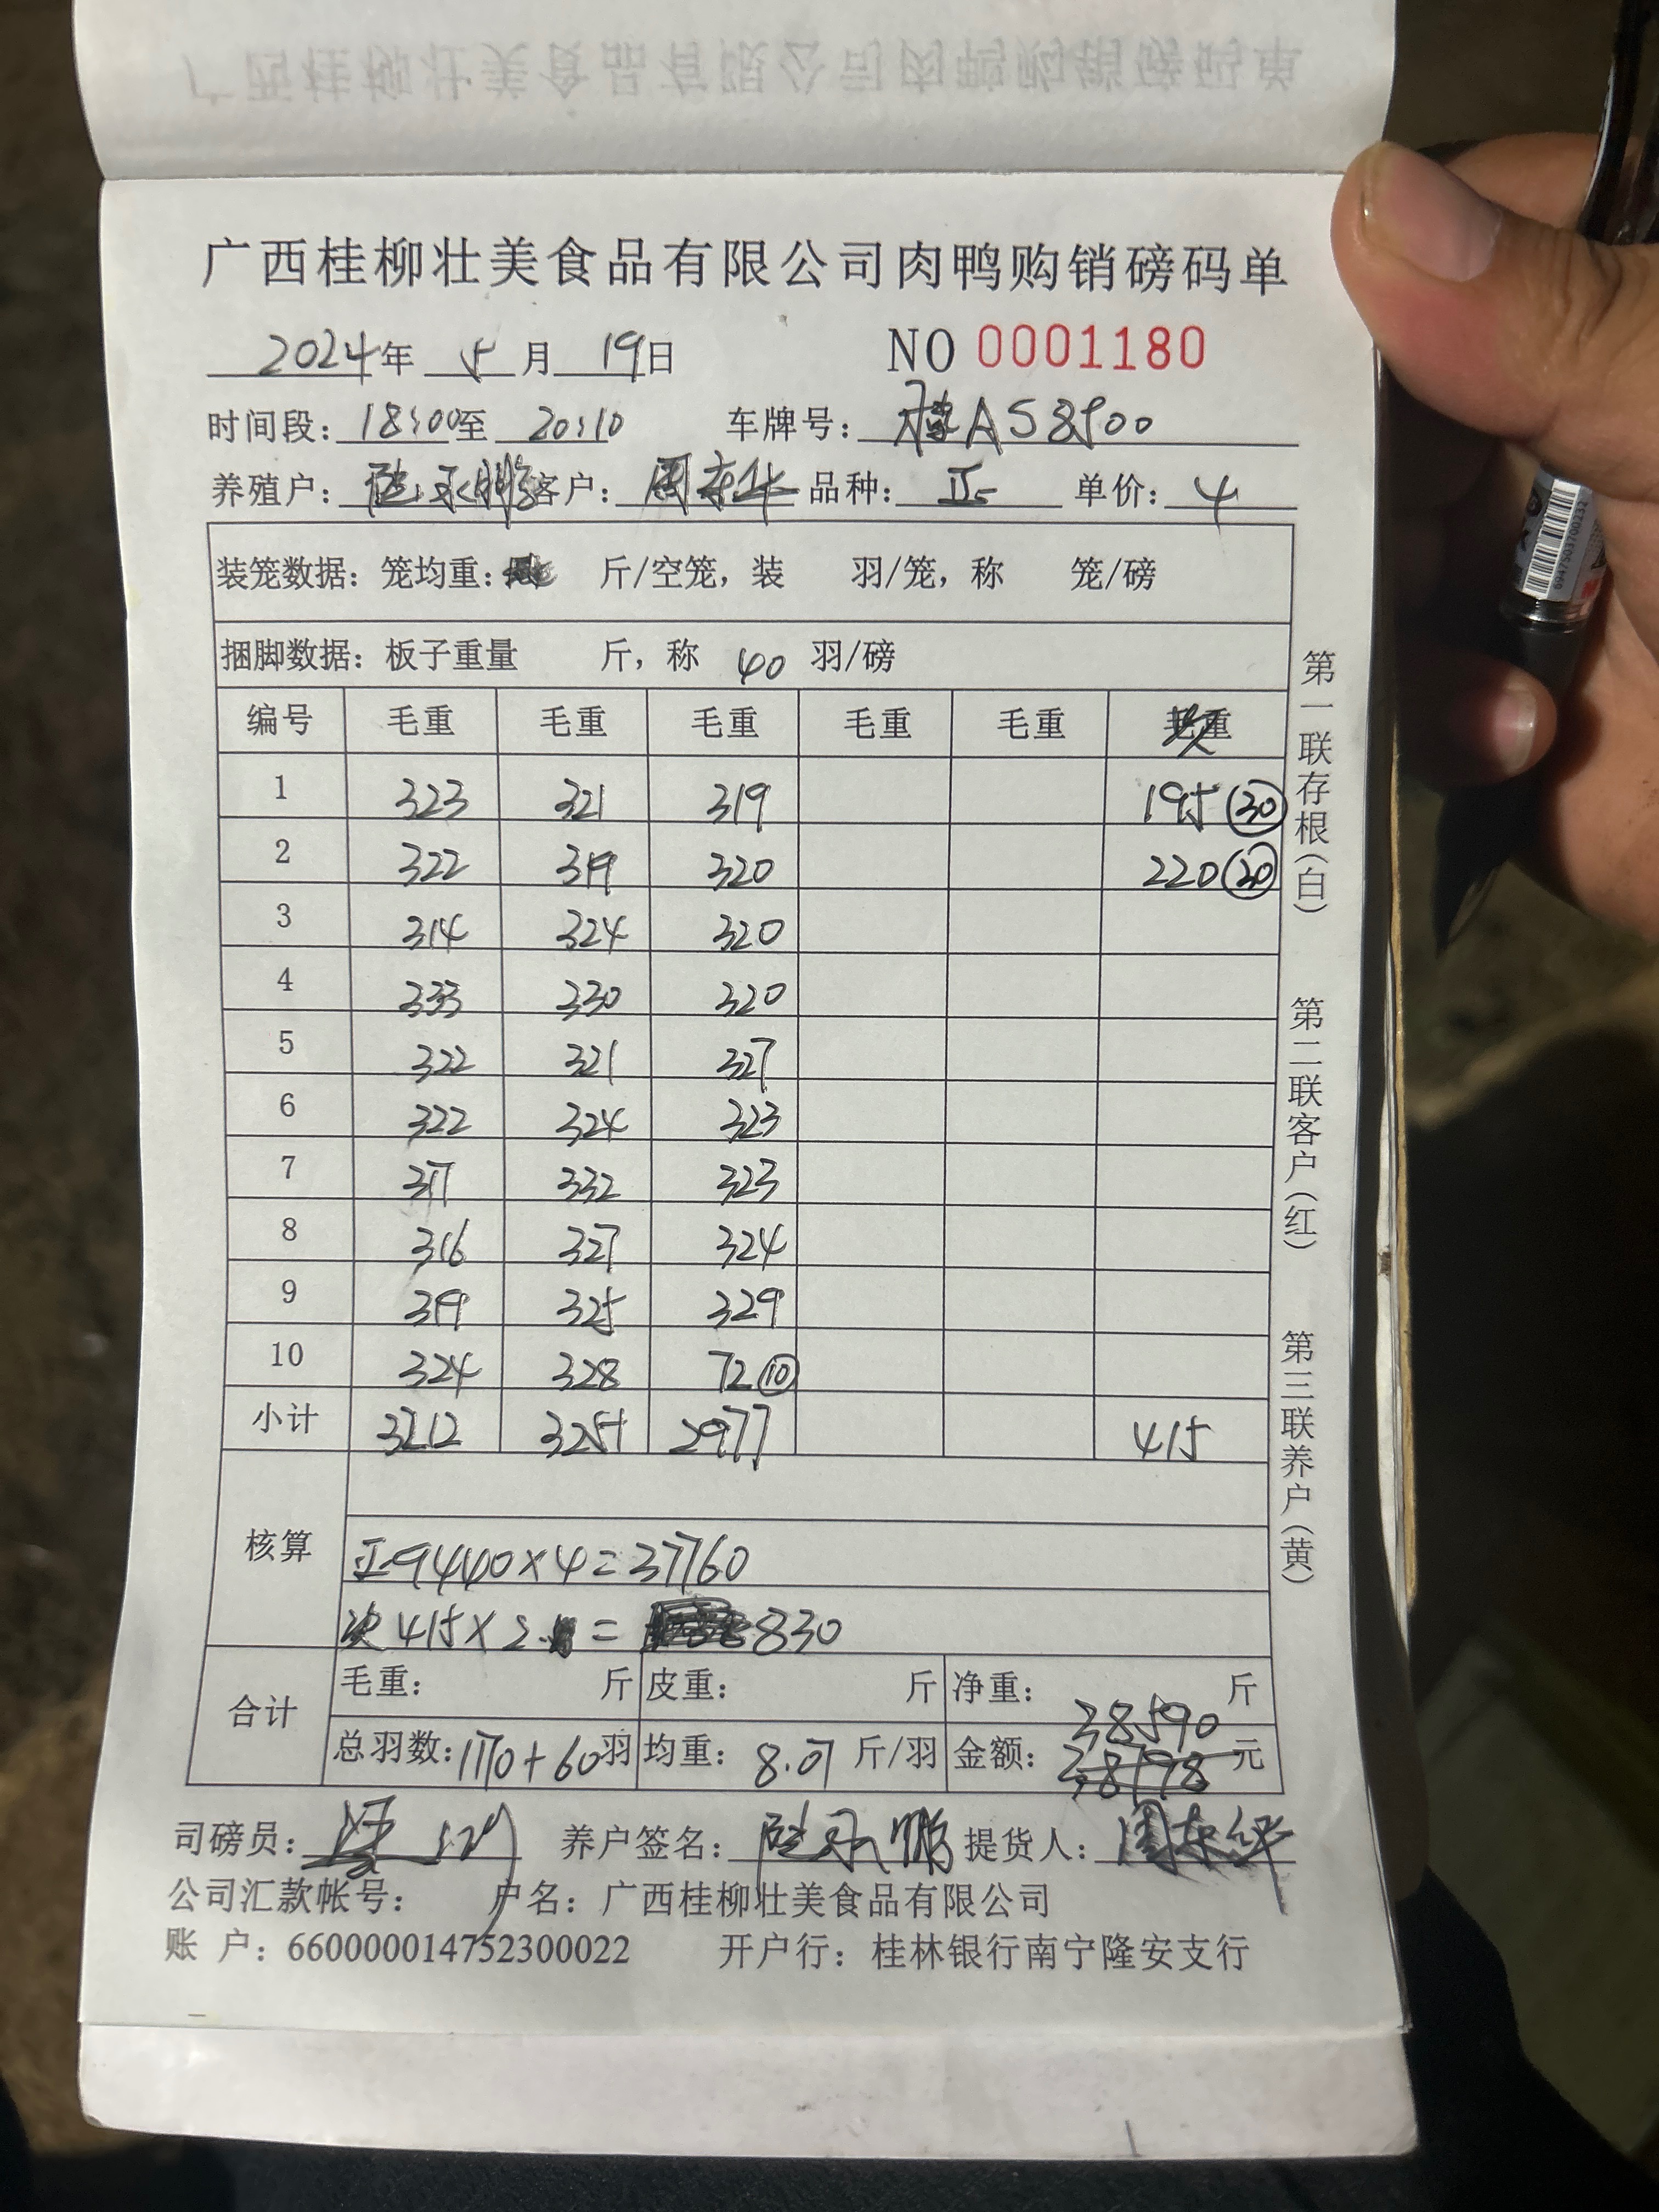 广西桂柳壮美食品有限公司肉鸭购销磅码单
广西桂柳壮美食品有限公司肉鸭购销磅码单
2024年 5月 19日 NO 0001180
时间段：18:00至 20:10 车牌号：桂A58900
养殖户：陆永鹏 客户：周东华 品种：正 单价：4
装笼数据：笼均重： 斤/空笼，装 羽/笼，称 笼/磅
捆脚数据：板子重量 斤，称 40 羽/磅
编号 毛重 毛重 毛重 毛重 毛重 次
1 323 321 319 195 30
2 322 319 320 220 30
3 314 324 320
4 333 330 320
5 322 321 327
6 322 324 323
7 317 332 323
8 316 327 324
9 319 325 329
10 324 328 72 10
小计 3212 3251 2977 415
核算
正 9440×4=37760
次 415×2 = 830
合计
毛重： 斤 皮重： 斤 净重： 斤
38590
总羽数：1170+60羽 均重：8.07 斤/羽 金额：38798 元
司磅员： 养户签名：陆永鹏 提货人：周东华
公司汇款帐号： 户名：广西桂柳壮美食品有限公司
账 户：660000014752300022 开户行：桂林银行南宁隆安支行
第一联存根（白） 第二联客户（红） 第三联养户（黄）
6947503700232